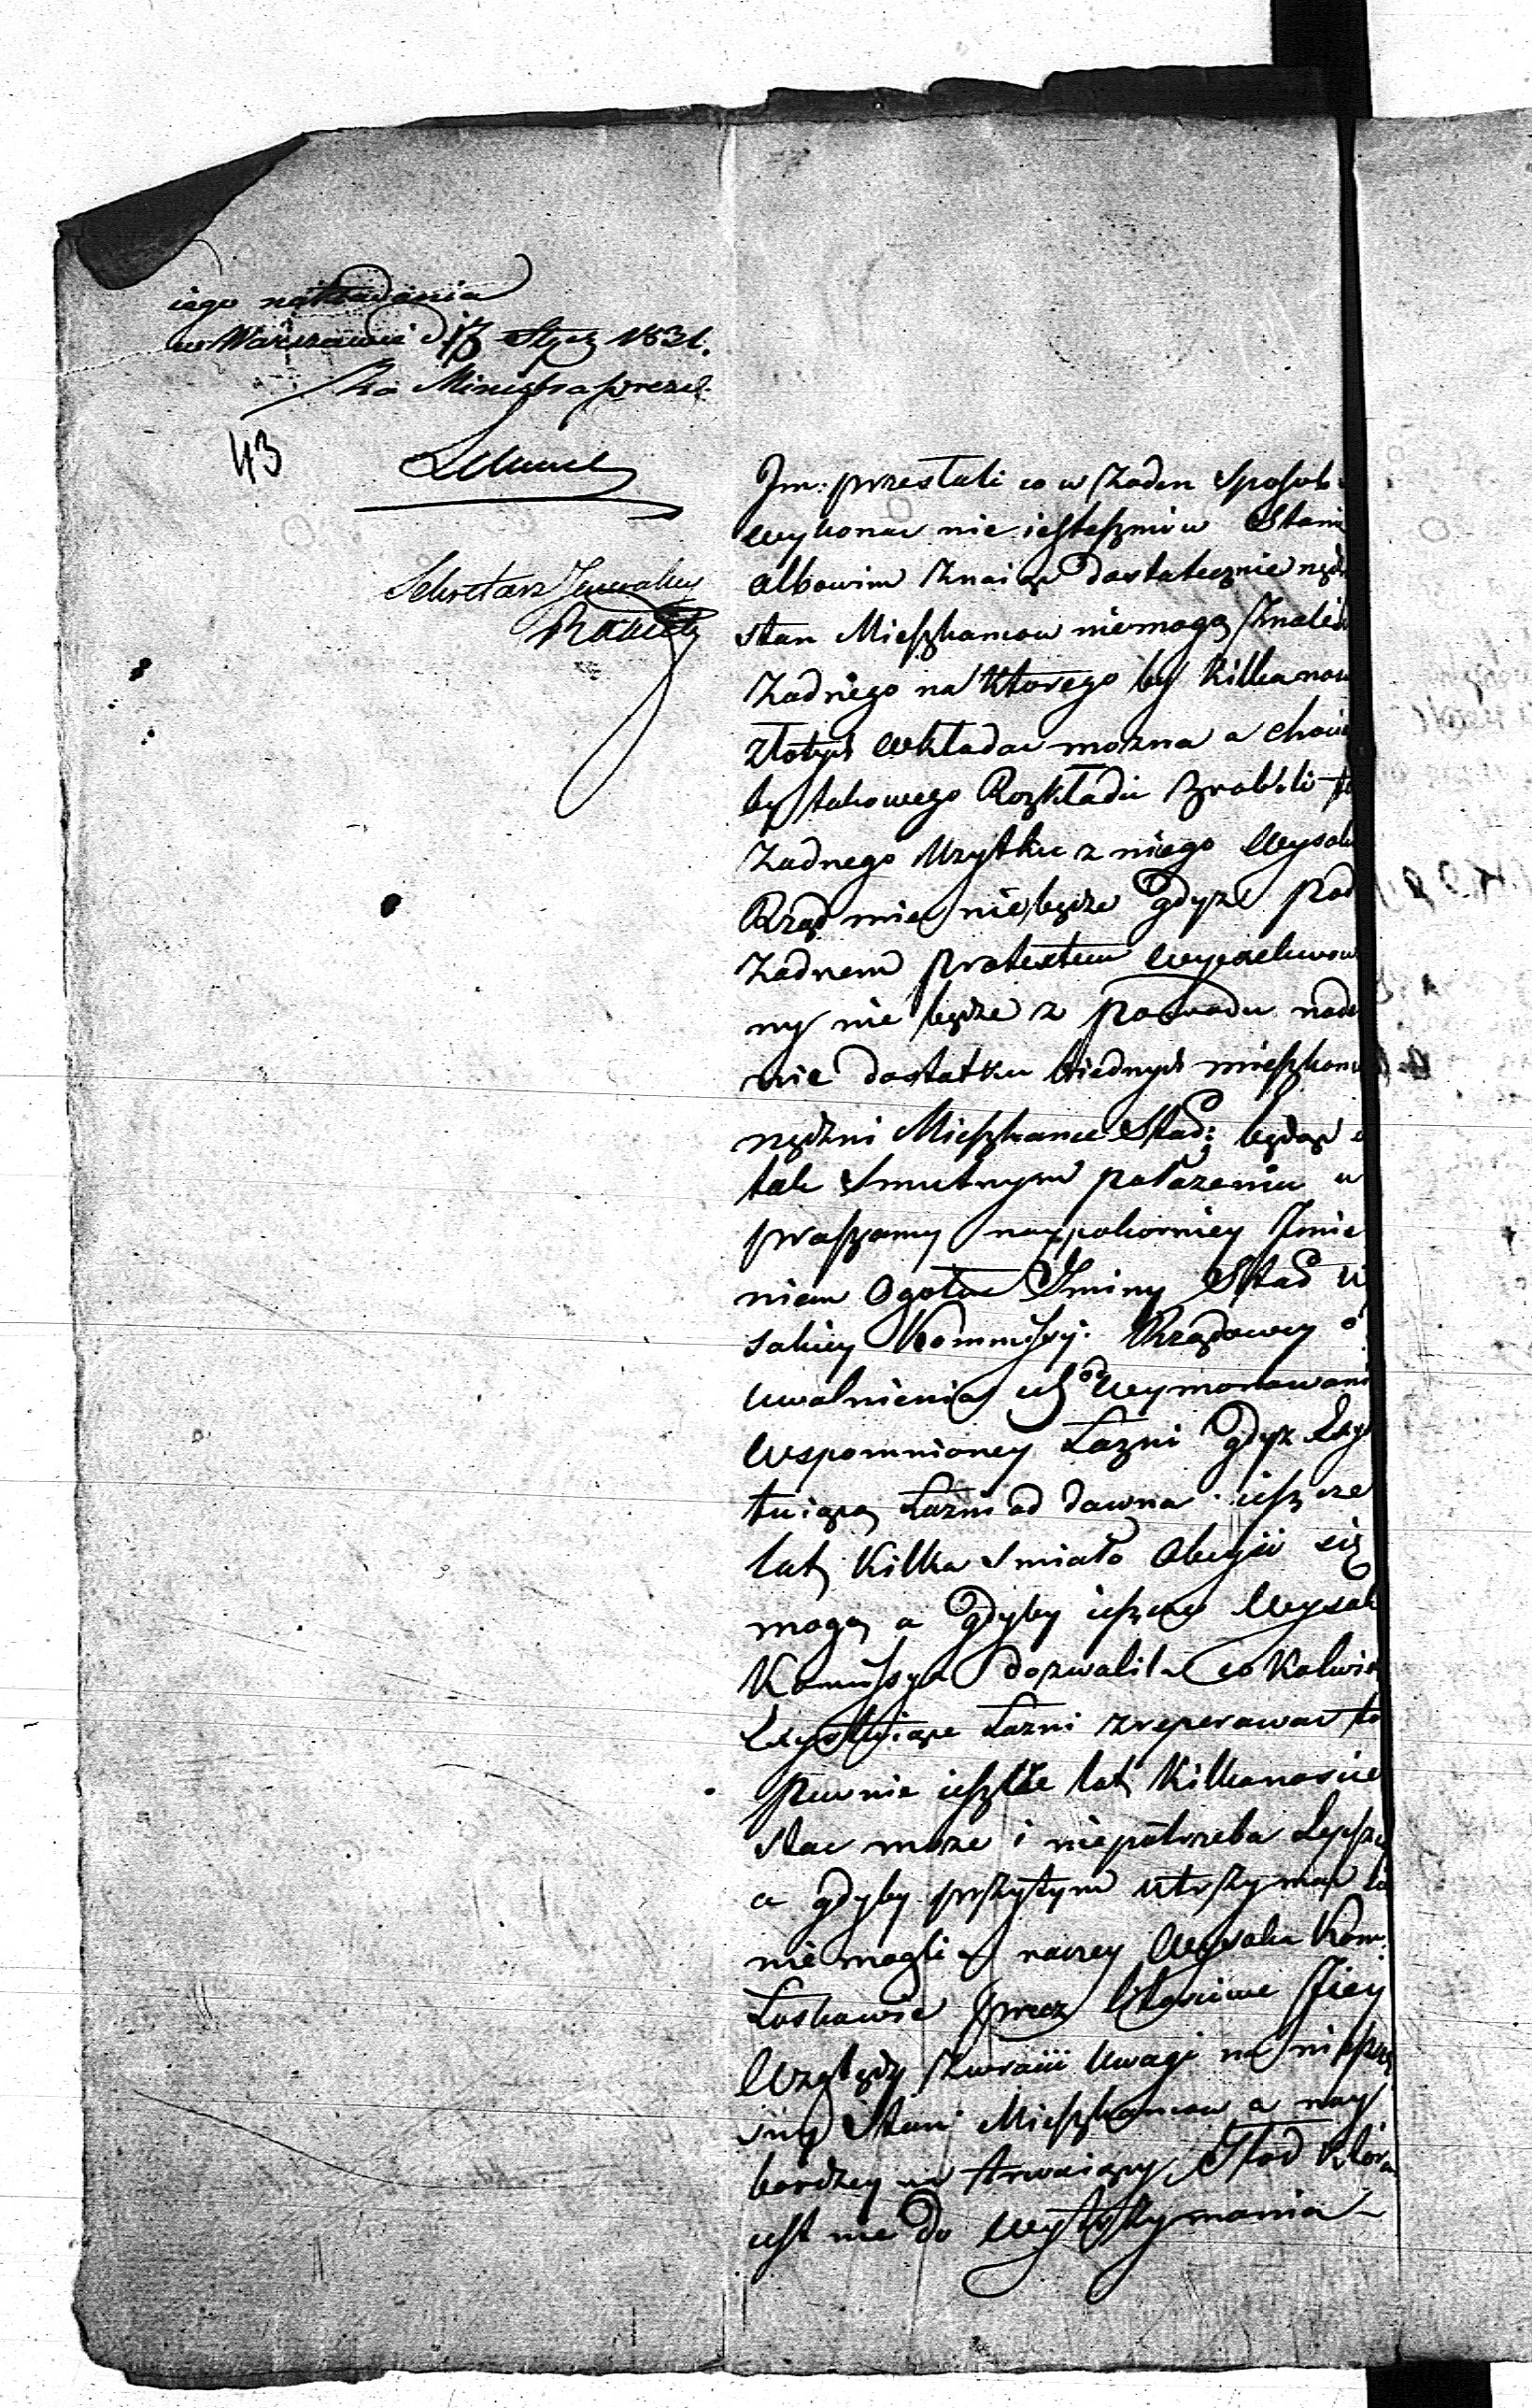 iego nakładania
w Warszawie d 17 Stycz 1831.
Za Ministra Prezed.
43
Lelewel
Sekretarz Jeneralny
Jm: przestali co w żaden sposob
wykonac nie iesteszmy w Stanie
albowim znaiąc dostatecznie nędz
stan Mieszkancow niemogą znaleś
Żadnego na ktorego by kilkanas
złotych wkładac mozna a choci
by takowego Rozkładu zrobili to
Żadnego Uzytku z niego Wysoki
Rząd miec nie będze gdyz pod
Żadnem pretextem wyexekwowa
ny nie będze z powodu nade
nie dostatku biednych mieszkanc
nędzni Mieszkance Stad: będąc
tak Smutnym położeniu u
praszamy naypokorniey Jmie
niem Ogółu Gminy Stad W
sokiey Kommissyi Rządowey o
uwolnienia ich od Wymorowani
wspomnioney Łazni gdyz Exys
tuiąca Łazni od dawna ieszcze
lat kilka Smiało Obeyść się
mogą a gdyby ieszcze Wysok
Kommissya dozwoliła cokolwie
Exystuiące Łazni zreperowac to
pewnie ieszcze lat kilkanascie
stac moze i niepotrzeba Lepszey
a gdyby przytym utrzymac
nie mogli raczey Wysoka Kom:
Łaskawie przez Litościwe Jiey
Względy zwrócić Uwagi na
Stan Mieszkancow a nay
bardzey na trwaiący Głod ktora
iest nie do wytrzymania